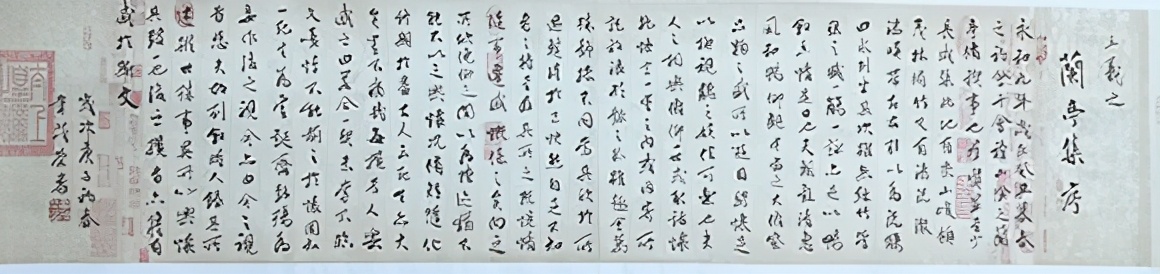 王羲之
蘭亭集序
永和九年歲在癸丑暮春
之初會于會稽山陰之蘭
亭脩禊事也羣賢畢至少
長咸集此地有崇山峻領
茂林脩竹又有清流激
湍暎帶左右引以為流觴
曲水列坐其次雖無絲竹管
弦之盛一觴一詠亦足以暢
敘幽情是日也天朗氣清惠
風和暢仰觀宇宙之大俯察
品類之盛所以遊目騁懷足
以極視聽之娛信可樂也夫
人之相與俯仰一世或取諸懷
抱悟言一室之內或因寄所
託放浪形骸之外雖趣舍萬
殊靜躁不同當其欣於所
遇蹔得於己快然自足不知
老之將至及其所之既惓情
隨事遷感慨係之矣向之
所欣俛仰之間以為陳迹猶不
能不以之興懷況脩短隨化
終期於盡古人云死生亦大
矣豈不痛哉每攬昔人興
感之由若合一契未嘗不臨
文嗟悼不能喻之於懷固知
一死生為虛誕齊彭殤為
妄作後之視今亦由今之視
昔悲夫故列敘時人錄其所
述雖世殊事異所以興懷
其致一也後之攬者亦將有
感於斯文
歲次庚子初春